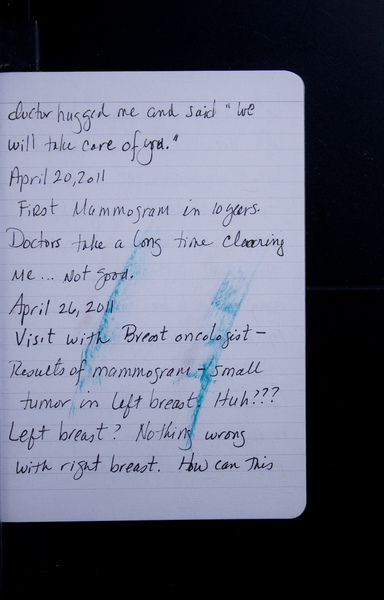 doctor hugged me and said "we
will take care of you."
April 20, 2011
First Mammogram in 10 years.
Doctors take a long time clearing
me... Not good.
April 26, 2011
Visit with Breast oncologist -
Results of mammogram - small
tumor in left breast. Huh???
Left breast? Nothing wrong
with right breast. How can this